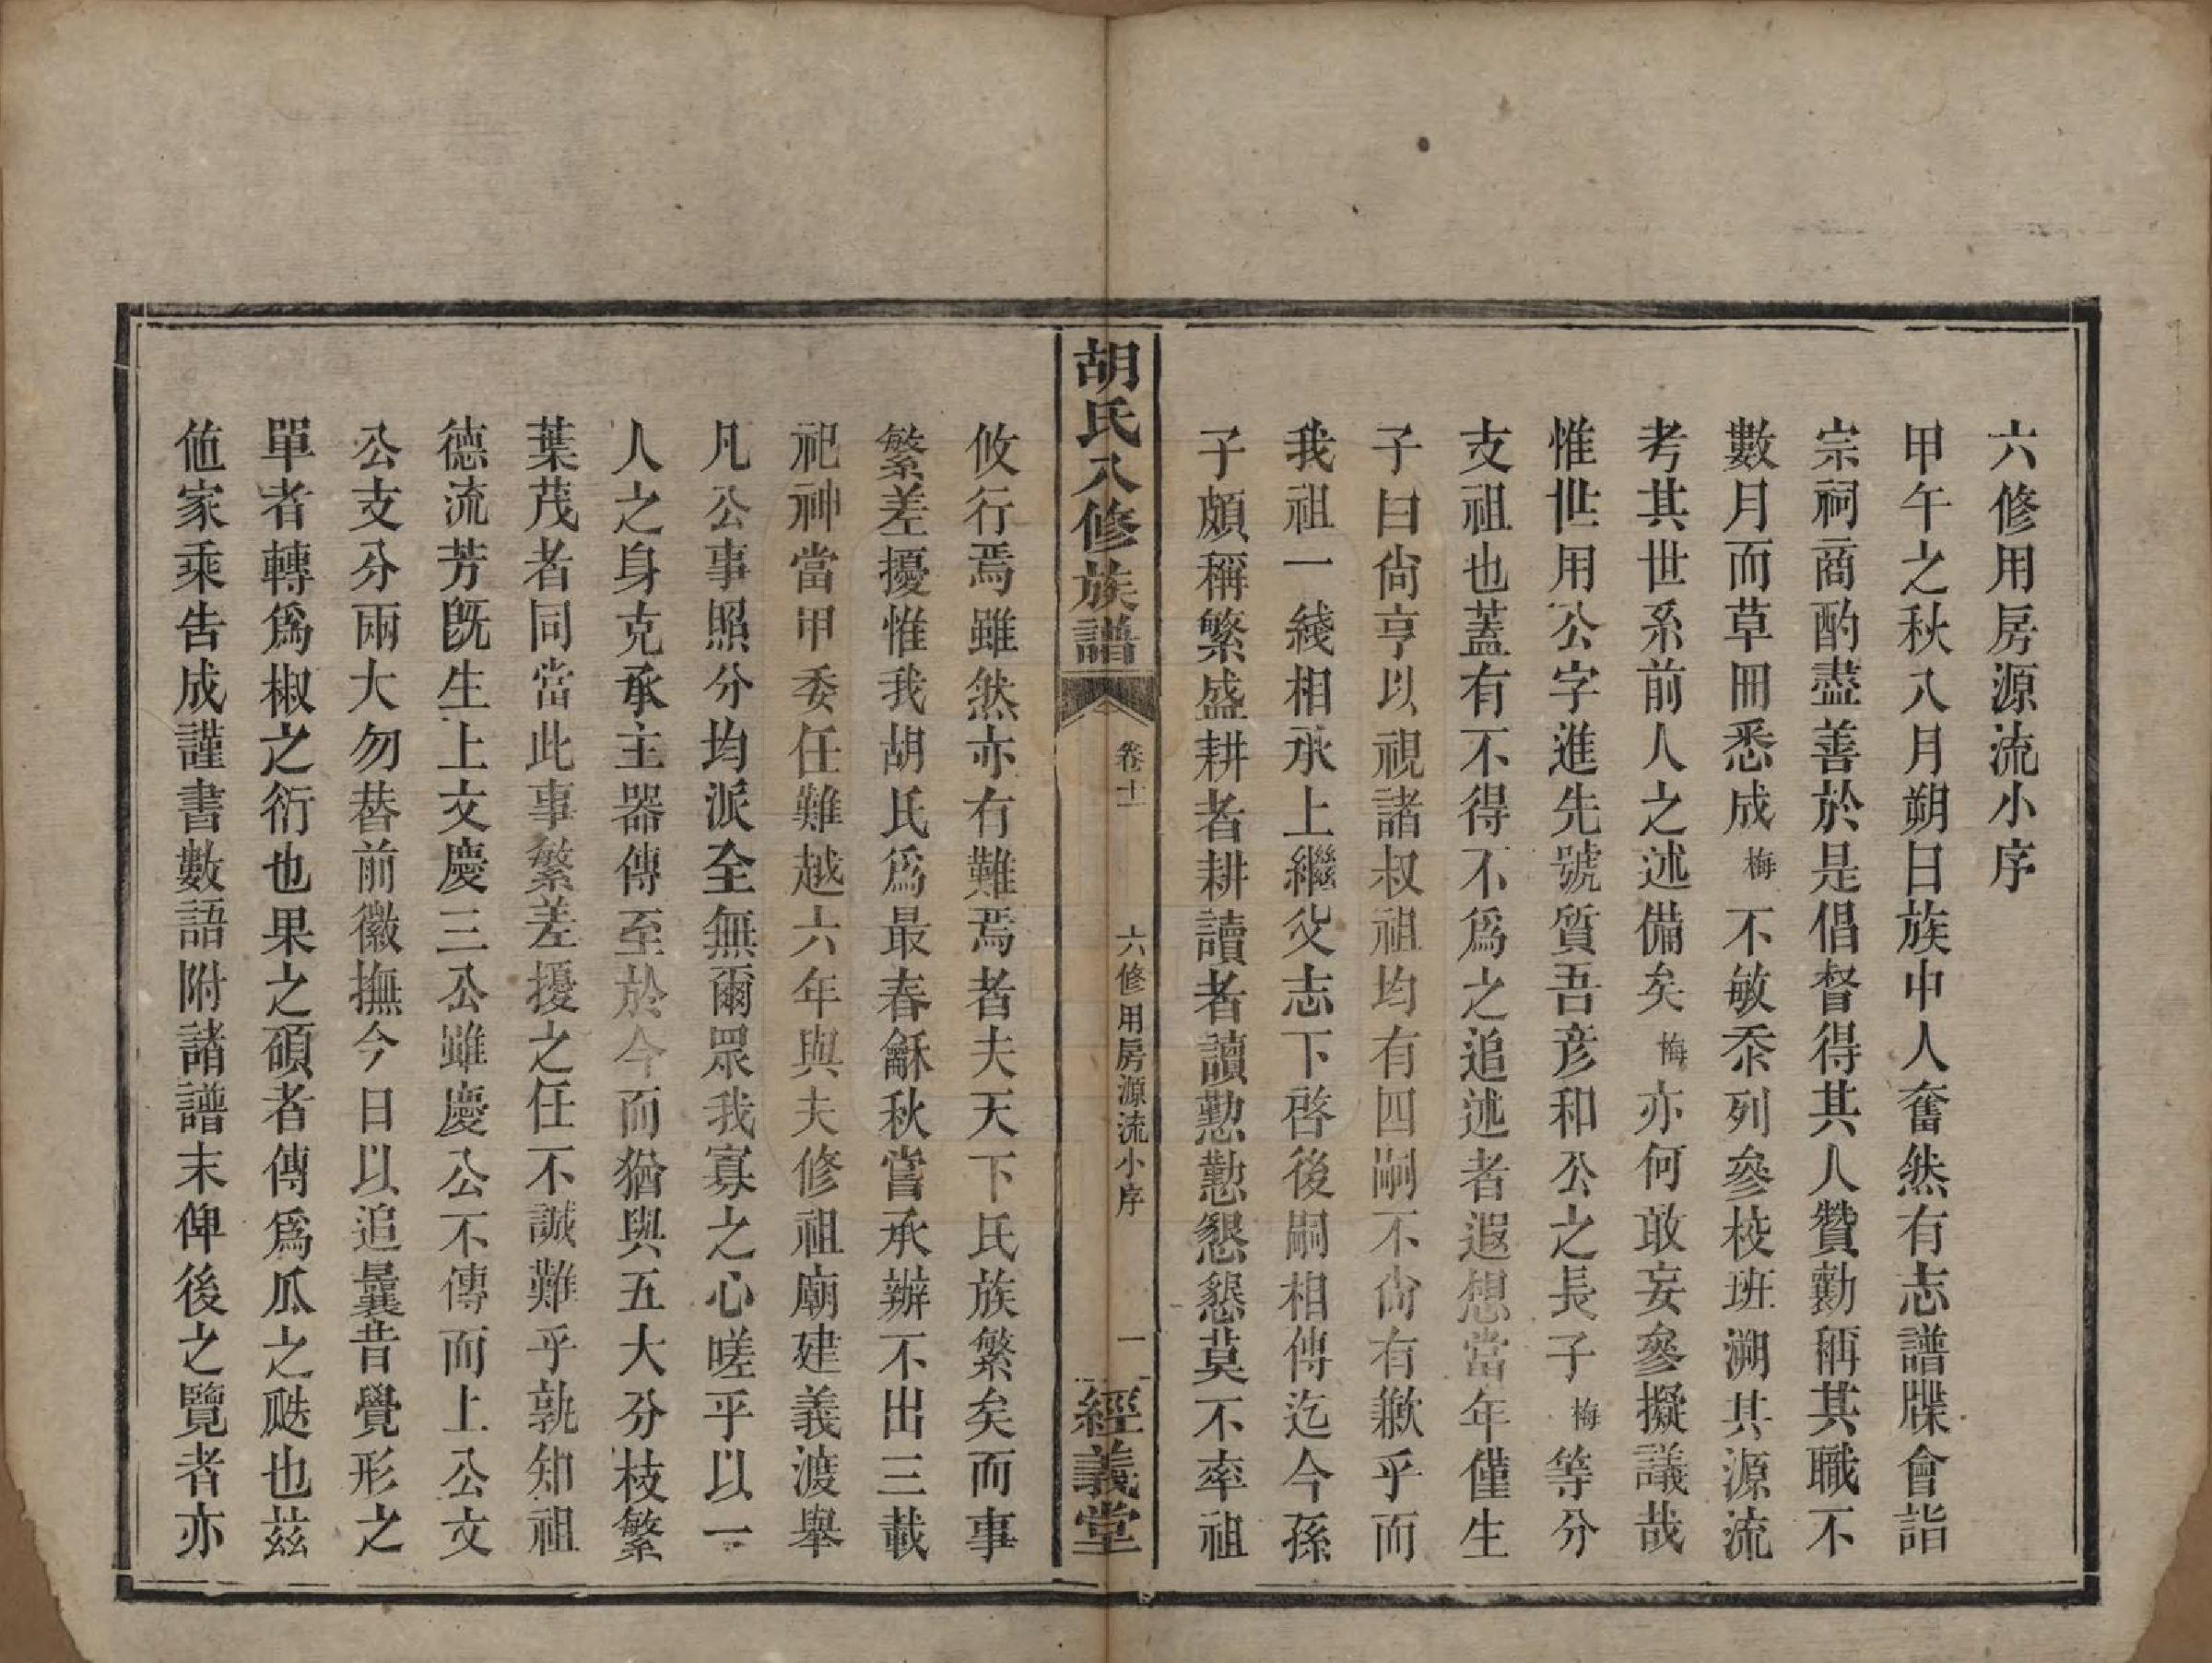 六修用房源流小序
甲午之秋八月朔日族中人奮然有志譜牒會詣
宗祠商酌盡善於是倡督得其人贊勷稱其職不
數月而草冊悉成梅不敏忝列參校班溯其源流
考其世系前人之述備矣梅亦何敢妄參擬議哉
惟世用公字進先號質吾彥和公之長子梅等分
支祖也蓋有不得不爲之追述者遐想當年僅生
子曰尙亨以視諸叔祖均有四嗣不尙有歉乎而
我祖一綫相承上繼父志下啓後嗣相傳迄今孫
子頗稱繁盛耕者耕讀者讀懃懃懇懇莫不率祖
胡氏八修族譜
卷十一
六修用房源流小序
一
經義堂
攸行焉雖然亦有難焉者夫天下氏族繁矣而事
繁差擾惟我胡氏爲最春龢秋嘗承辦不出三載
祀神當甲委任難越六年與夫修祖廟建義渡舉
凡公事照分均派全無爾眾我寡之心嗟乎以一
人之身克承主器傳至於今而猶與五大分枝繁
葉茂者同當此事繁差擾之任不誠難乎孰知祖
德流芳旣生上文慶三公雖慶公不傳而上公文
公支分兩大勿替前徽撫今日以追曩昔覺形之
單者轉爲椒之衍也果之碩者傳爲瓜之瓞也茲
値家乘告成謹書數語附諸譜末俾後之覽者亦